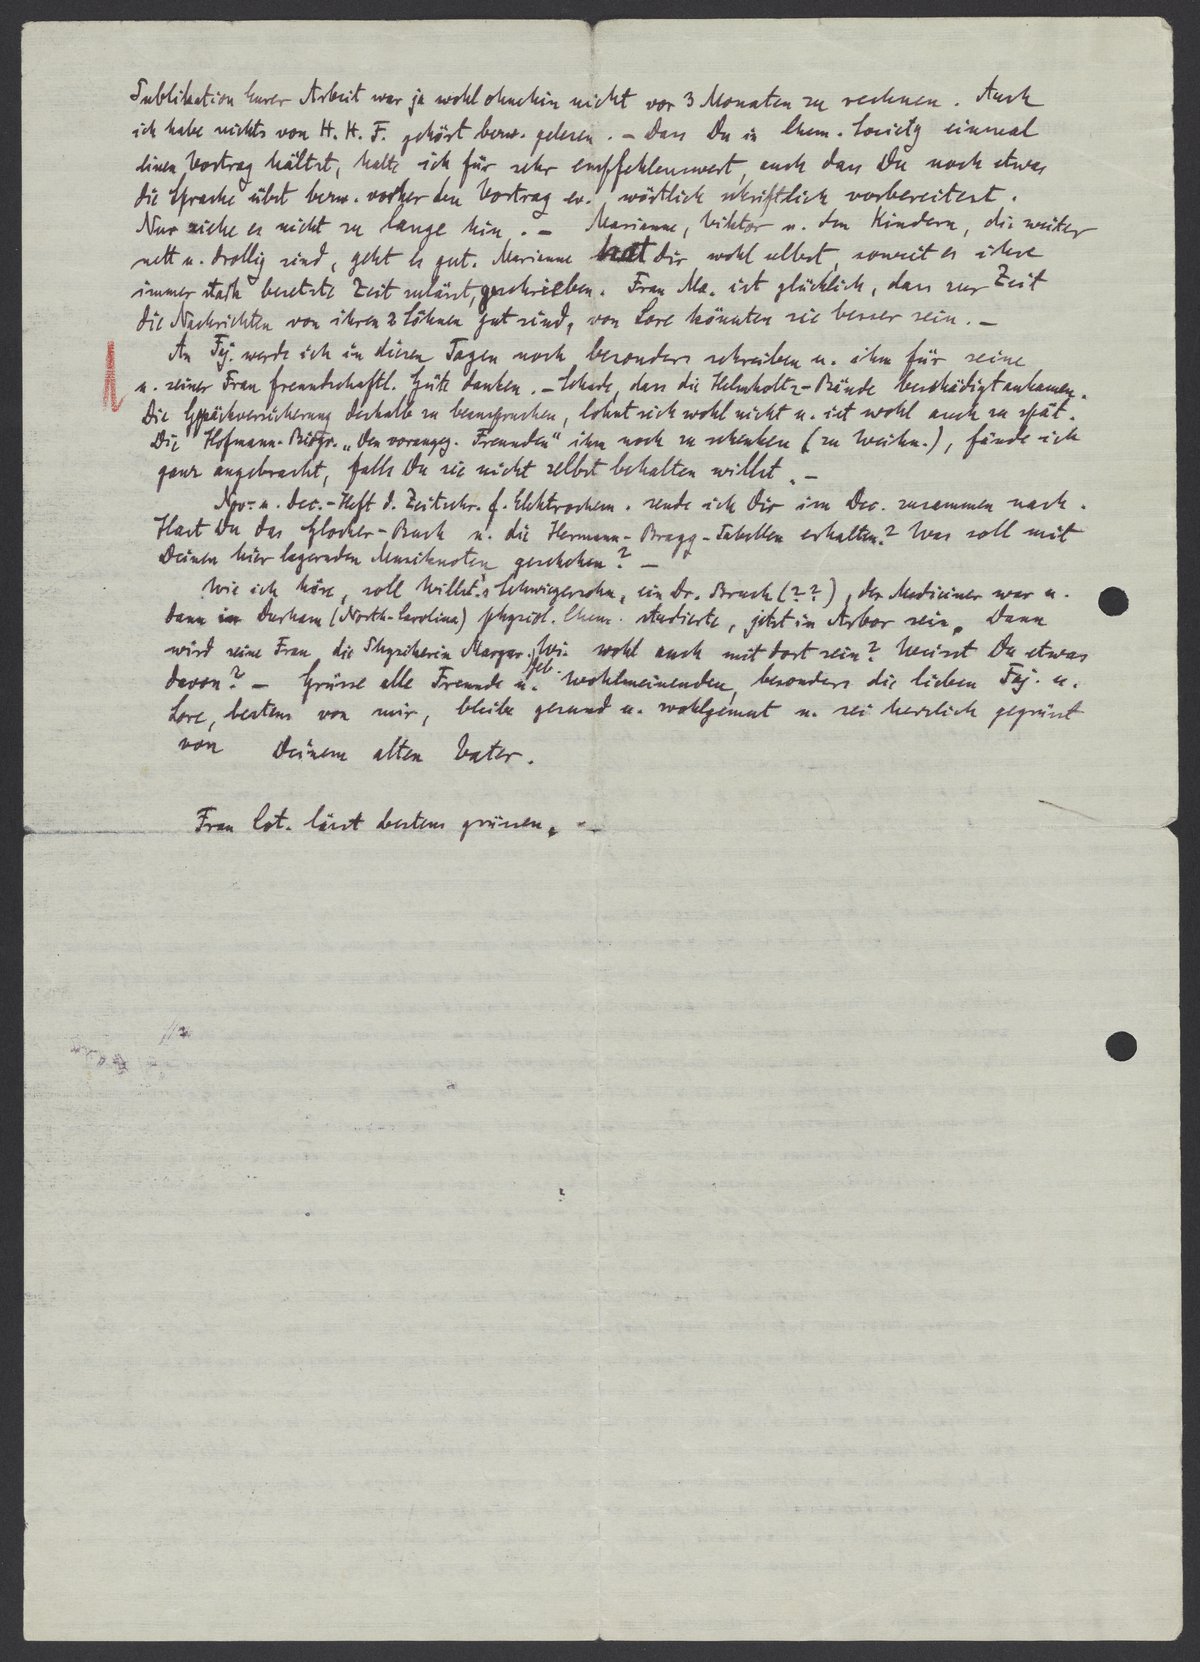 Publikation Eurer Arbeit war ja wohl ohnehin nicht vor 3 Monaten zu rechnen. Auch
ich habe nichts von H. H. F. gehört bezw. gelesen. – Dass Du in Chem. Society einmal
einen Vortrag hältst, halte ich für sehr empfehlenswert, auch dass Du noch etwas
die Sprache übst bezw. vorher den Vortrag ev. wörtlich schriftlich vorbereitest.
Nur ziehe es nicht zu lange hin. – Marianne, Viktor u. den Kindern, die weiter
nett u. drollig sind, geht es gut. Marianne hat Dir wohl selbst, soweit es ihre
immer stark besetzte Zeit zulässt, geschrieben. Frau Ma. ist glücklich, dass zur Zeit
die Nachrichten von ihren 2 Söhnen gut sind, von Lore könnten sie besser sein. –
An Faj. werde ich in diesen Tagen noch besonders schreiben u. ihm für seine
u. seiner Frau freundschaftl. Güte danken. – Schade, dass die Helmholtz-Bände beschädigt ankamen.
Die Gepäckversicherung deshalb zu beanspruchen, lohnt sich wohl nicht u. ist wohl auch zu spät.
Die Hofmann-Biogr. „Den vorangeg. Freunden" ihm noch zu schenken (zu Weihn.), fände ich
ganz angebracht, falls Du sie nicht selbst behalten willst. –
Nov.- u. Dec.-Heft d. Zeitschr. f. Elektrochem. sende ich Dir im Dec. zusammen nach.
Hast Du das Glocker-Buch u. die Hermann-Bragg-Tabellen erhalten? Was soll mit
Deinen hier lagernden Musiknoten geschehen? –
Wie ich höre, soll Willst.'s Schwiegersohn, ein Dr. Bruch (??), der Mediciner war u.
dann in Durham (North-Carolina) physiol. Chem. studierte, jetzt in Arbor sein. Dann
wird seine Frau, die Physikerin Margar. geb. Wi. wohl auch mit dort sein? Weisst Du etwas
davon? – Grüsse alle Freunde u. Wohlmeinenden, besonders die lieben Faj. u.
Lore, bestens von mir, bleibe gesund u. wohlgemut u. sei herzlich gegrüsst
von Deinem alten Vater.
Frau Cot. lässt bestens grüssen. –